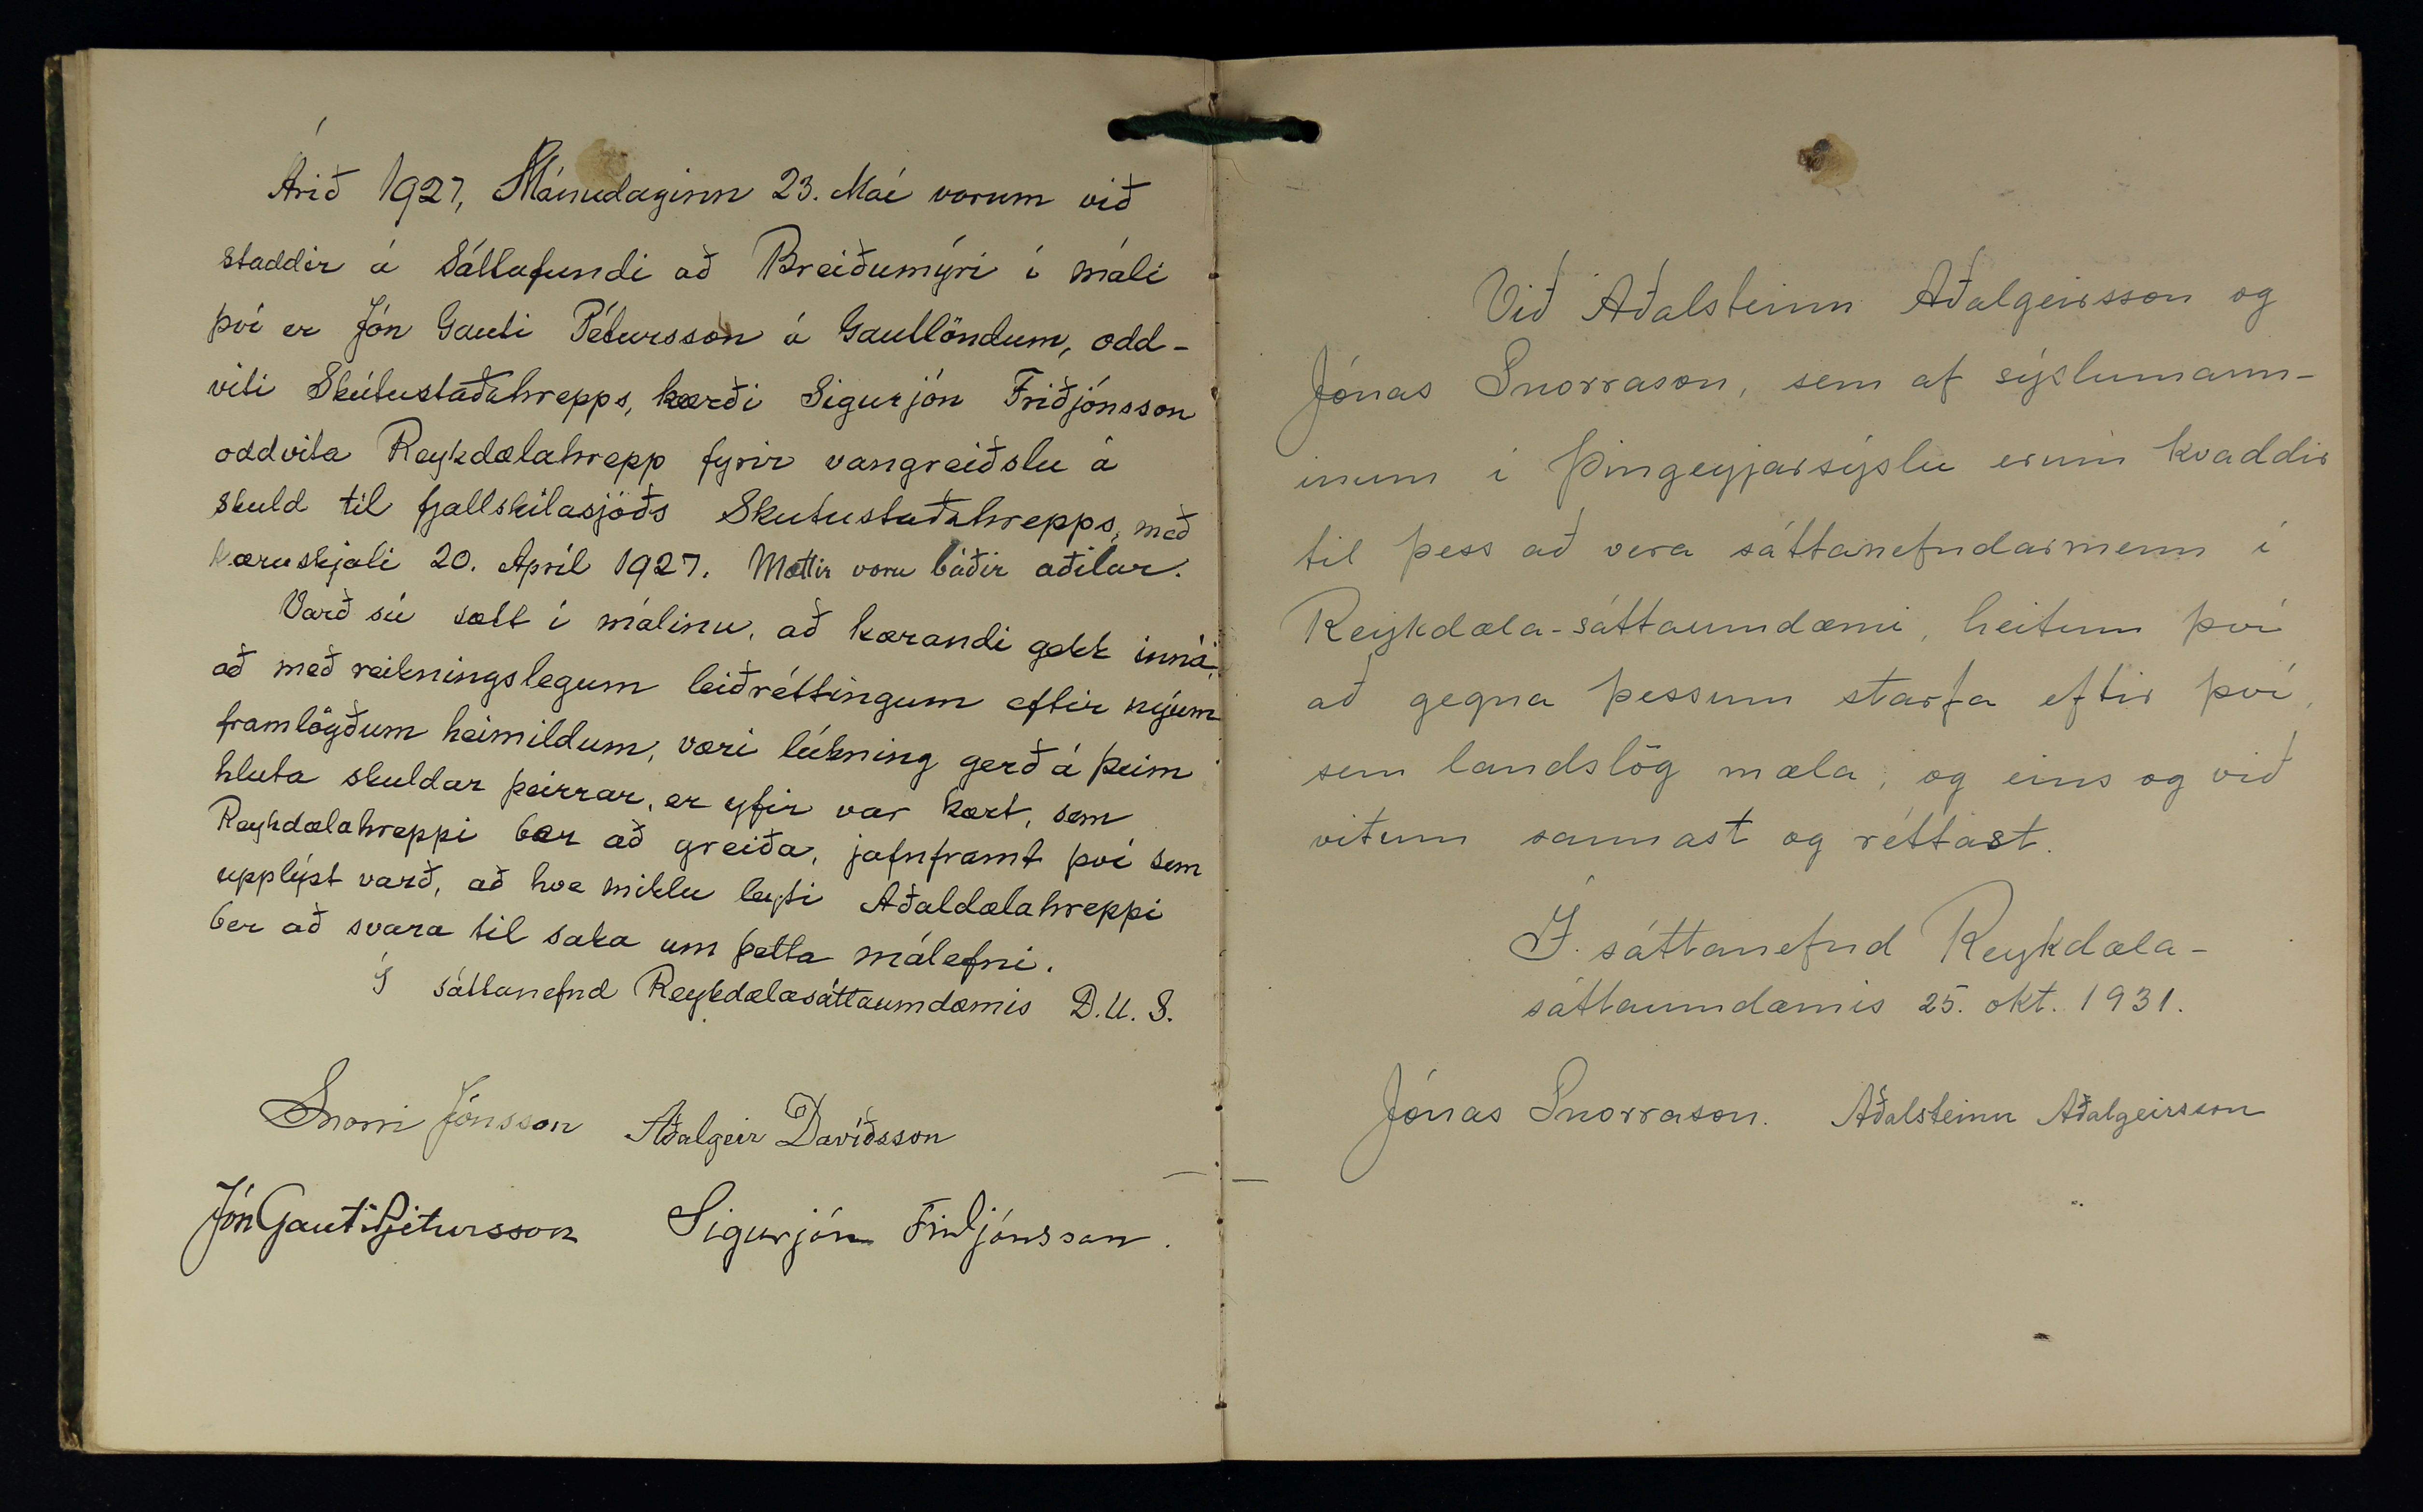 Árið 1927, Mánudaginn 23. Maí vorum við
staddir á Sáttafundi að Breiðumýri í máli
því er Jón Gauti Pétursson á Gautlöndum, odd-
viti Skútustaðahrepps, kærði Sigurjón Friðjónsson
oddvita Reykdælahrepp fyrir vangreiðslu á
skuld til fjallskilasjóðs Skutustaðahrepps, með
kæruskjali 20. Apríl 1927. Mættir voru báðir aðilar.
Varð sú sætt í málinu, að kærandi gekk inná,
að með reikningslegum leiðréttingum eftir nýum
framlögðum heimildum, væri lúkning gerð á þeim
hluta skuldar þeirrar, er yfir var kært, sem
Reykdælahreppi ber að greiða, jafnframt því sem
upplýst varð, að hve miklu leyti Aðaldælahreppi
ber að svara til saka um þetta málefni.
Í sáttanefnd Reykdælasáttaumdæmis D.U.S.
Snorri Jónsson Aðalgeir Davíðsson
Jón Gauti Pjetursson Sigurjón Friðjónsson.
Við Aðalsteinn Aðalgeirsson og
Jónas Snorrason, sem af sýslumann-
inum í Þingeyjarsýslu erum kvaddir
til þess að vera sáttanefndarmenn í
Reykdæla-sáttaumdæmi, heitum því
að gegna þessum starfa eftir því,
sem landslög mæla, og eins og við
vitum sannast og réttast.
Í sáttanefnd Reykdæla-
sáttaumdæmis 25. okt. 1931.
Jónas Snorrason. Aðalsteinn Aðalgeirsson